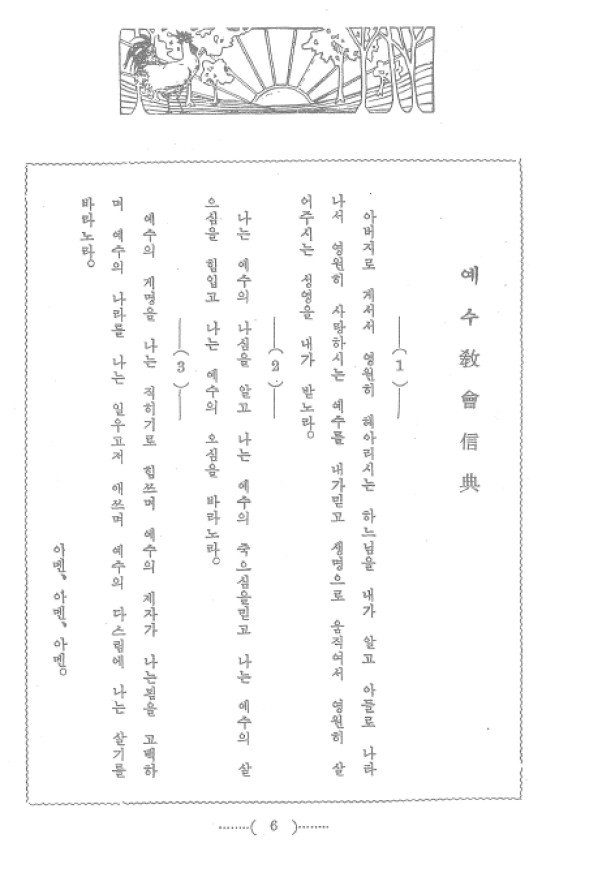 예수敎會信典
(1)
아버지로 계서서 영원히 헤아리시는 하느님을 내가 알고 아들로 나타
나서 영원히 사랑하시는 예수를 내가믿고 생명으로 움직여서 영원히 살
어주시는 성영을 내가 받노라。
(2)
나는 예수의 나심을 알고 나는 예수의 죽으심을믿고 나는 예수의 살
으심을 힘입고 나는 예수의 오심을 바라노라。
(3)
예수의 계명을 나는 직히기로 힘쓰며 예수의 제자가 나는됨을 고백하
며 예수의 나라를 나는 일우고저 애쓰며 예수의 다스림에 나는 살기를
바라노라。
아멘、아멘、아멘。
( 6 )